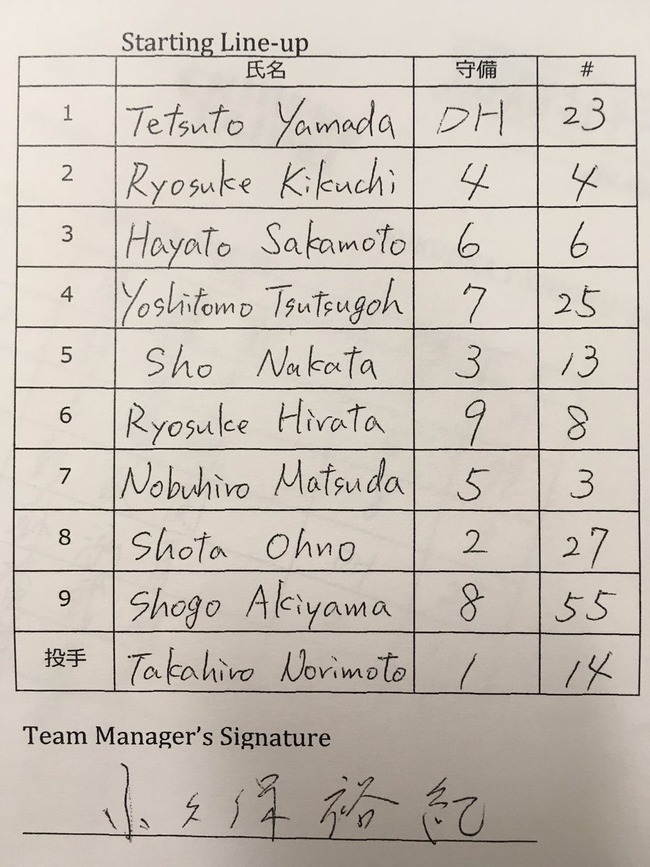 Starting Line-up
氏名 守備 #
1 Tetsuto Yamada DH 23
2 Ryosuke Kikuchi 4 4
3 Hayato Sakamoto 6 6
4 Yoshitomo Tsutsugoh 7 25
5 Sho Nakata 3 13
6 Ryosuke Hirata 9 8
7 Nobuhiro Matsuda 5 3
8 Shota Ohno 2 27
9 Shogo Akiyama 8 55
投手 Takahiro Norimoto 1 14
Team Manager's Signature
小久保裕紀